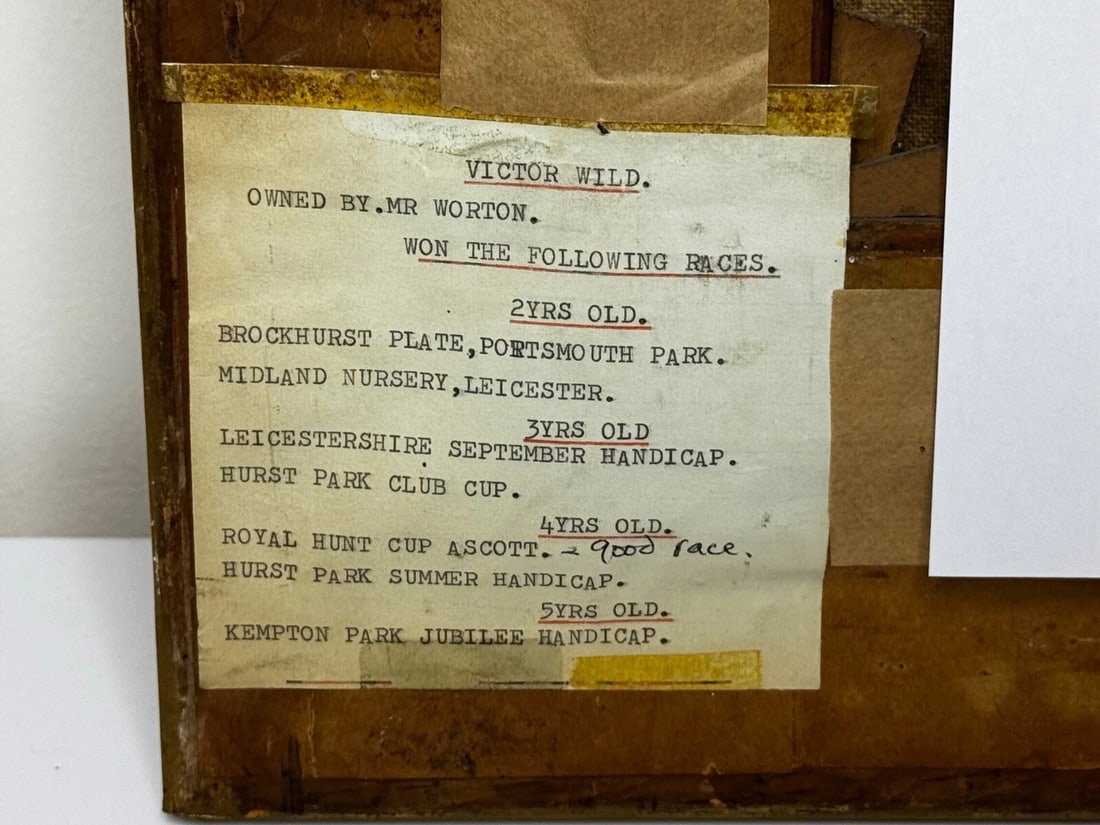 VICTOR WILD.
OWNED BY.MR WORTON.
WON THE FOLLOWING RACES.
2YRS OLD.
BROCKHURST PLATE,PORTSMOUTH PARK.
MIDLAND NURSERY,LEICESTER.
3YRS OLD
LEICESTERSHIRE SEPTEMBER HANDICAP.
HURST PARK CLUB CUP.
4YRS OLD.
ROYAL HUNT CUP ASCOTT. - good race.
HURST PARK SUMMER HANDICAP.
5YRS OLD.
KEMPTON PARK JUBILEE HANDICAP.